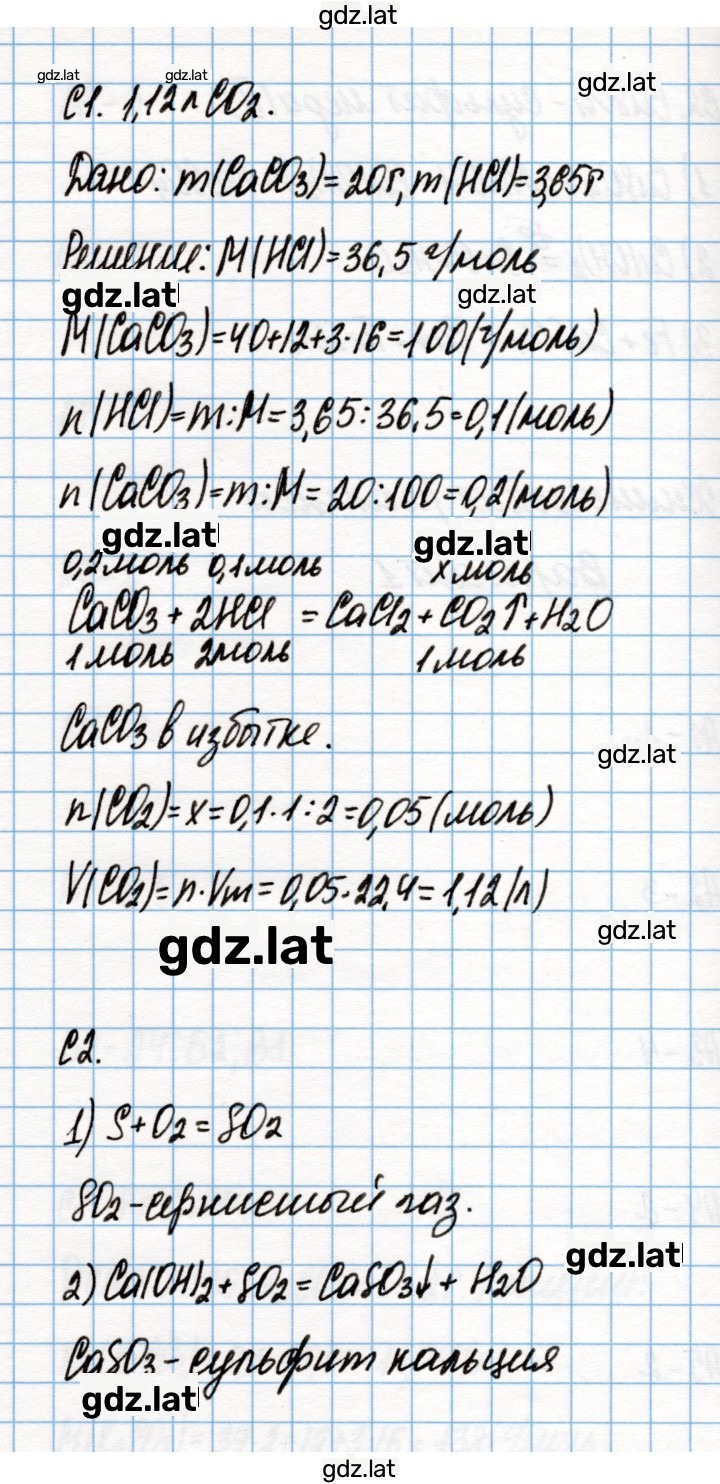 gdz.lat
gdz.lat gdz.lat gdz.lat
С1. 1,12 л CO2.
Дано: m(CaCO3)=20г, m(HCl)=3,65г
Решение: M(HCl)=36,5 г/моль
gdz.lat gdz.lat
M(CaCO3)=40+12+3·16=100(г/моль)
n(HCl)=m:M=3,65:36,5=0,1(моль)
n(CaCO3)=m:M=20:100=0,2(моль)
gdz.lat gdz.lat
0,2моль 0,1моль xмоль
CaCO3+2HCl=CaCl2+CO2↑+H2O
1моль 2моль 1моль
CaCO3 в избытке.
gdz.lat
n(CO2)=x=0,1·1:2=0,05(моль)
V(CO2)=n·Vm=0,05·22,4=1,12(л)
gdz.lat gdz.lat
С2.
1) S+O2=SO2
SO2-сернистый газ.
gdz.lat
2) Ca(OH)2+SO2=CaSO3↓+H2O
CaSO3-сульфит кальция
gdz.lat
gdz.lat